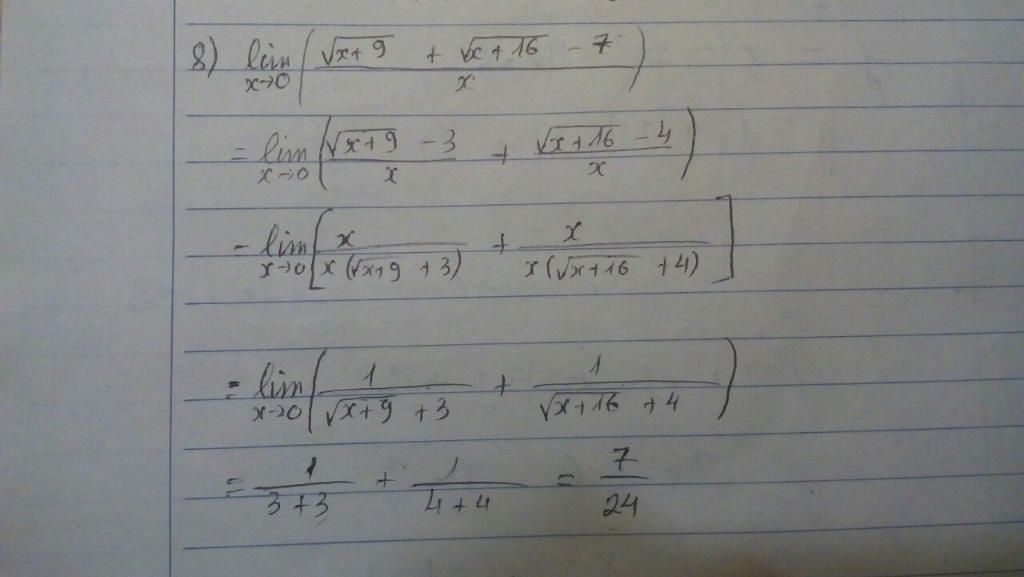 8) lim x→0 ( (√(x+9) + √(x+16) - 7) / x )
= lim x→0 ( (√(x+9) - 3) / x + (√(x+16) - 4) / x )
= lim x→0 [ x / (x(√(x+9) + 3)) + x / (x(√(x+16) + 4)) ]
= lim x→0 ( 1 / (√(x+9) + 3) + 1 / (√(x+16) + 4) )
= 1 / (3+3) + 1 / (4+4) = 7/24